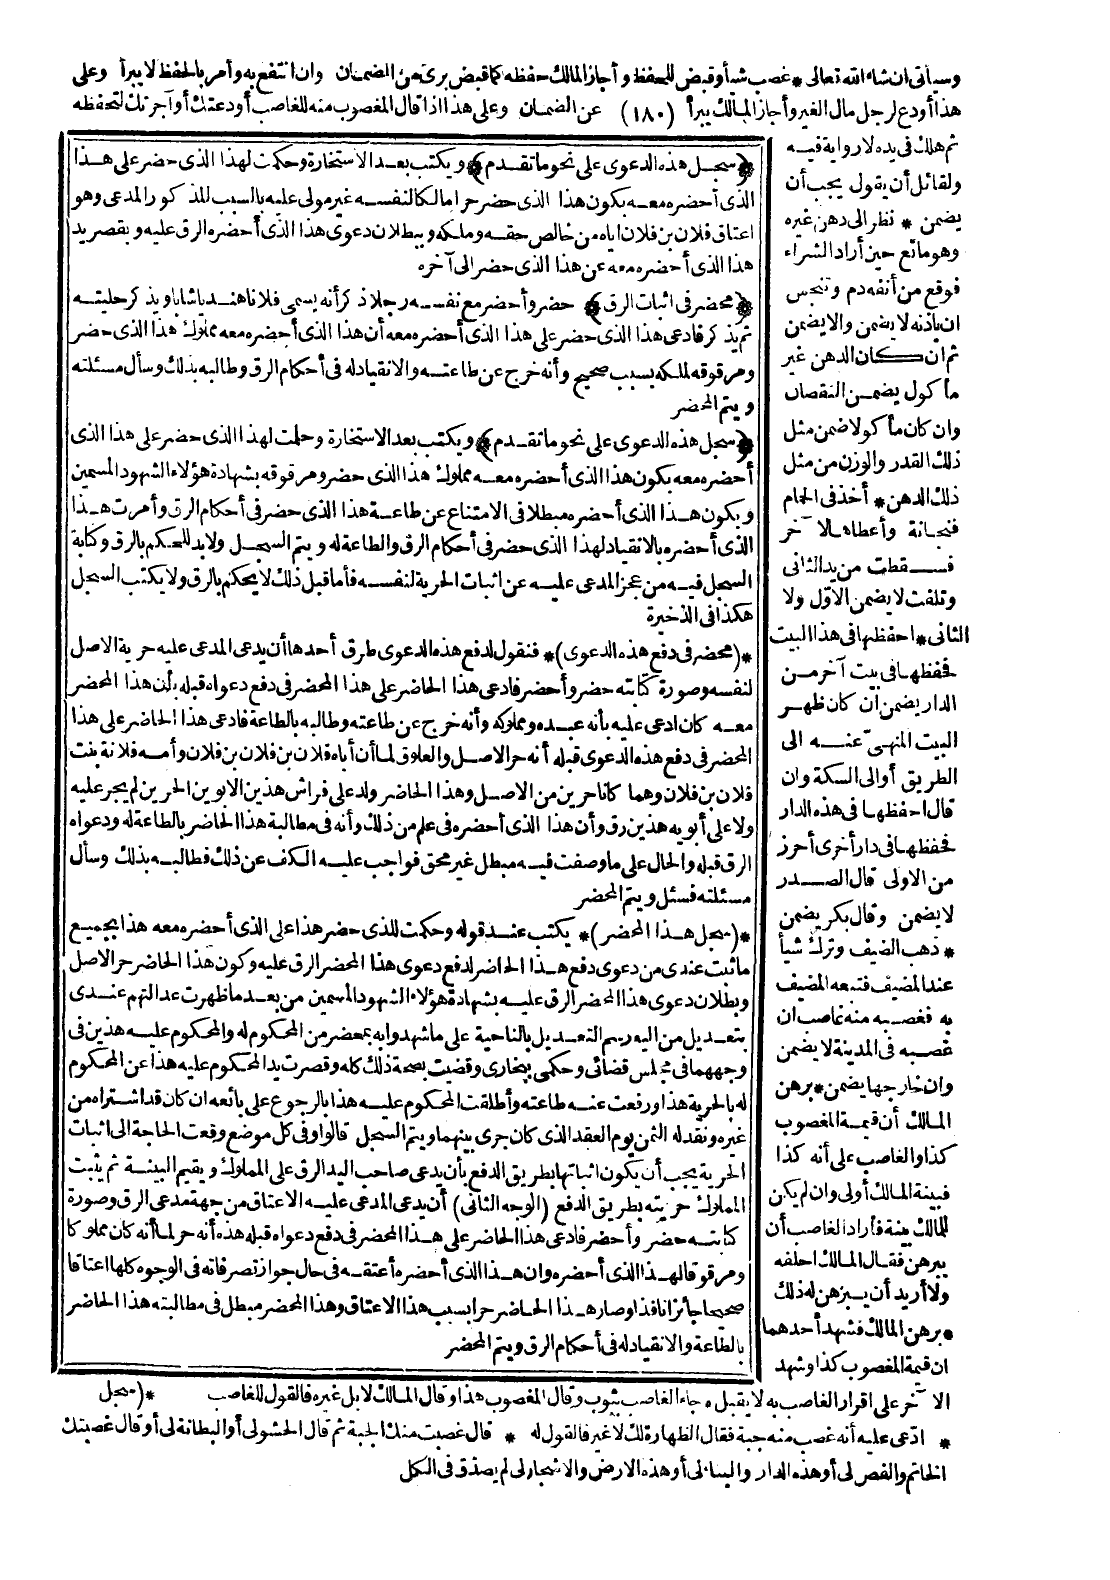 وسيأتى ان شاء الله تعالى * غصب شيأ وقبض للحفظ وأجاز المالك حفظه كما قبض برئ من الضمان وان انتفع به وأمر بالحفظ لا يبرأ وعلى
هذا أودع لرجل مال الغير وأجاز المالك يبرأ (١٨٠) عن الضمان وعلى هذا اذا قال المغصوب منه للغاصب أودعتك أو آجرتك لتحفظه
ثم هلك فى يده لا رواية فيه
ولقائل أن يقول يجب أن
يضمن * نظر الى دهن غيره
وهو مائع حين أراد الشراء
فوقع من أنفه دم وتنجس
ان باذنه لا يضمن والا يضمن
ثم ان كان الدهن غير
مأكول يضمن النقصان
وان كان مأكولا ضمن مثل
ذلك القدر والوزن من مثل
ذلك الدهن * أخذ فى الحمام
فنجانة وأعطاها لآخر
فسقطت من يد الثانى
وتلفت لا يضمن الأوّل ولا
الثانى * احفظها فى هذا البيت
فحفظها فى بيت آخر من
الدار يضمن ان كان ظهر
البيت المنهىّ عنه الى
الطريق أو الى السكة وان
قال احفظها فى هذه الدار
فحفظها فى دار أخرى أحرز
من الاولى قال الصدر
لا يضمن وقال بكر يضمن
* ذهب الضيف وترك شيأ
عند المضيف فتبعه المضيف
به فغصبه منه غاصب ان
غصبه فى المدينة لا يضمن
وان خارجها يضمن * برهن
المالك أن قيمة المغصوب
كذا والغاصب على أنه كذا
فبينة المالك أولى وان لم يكن
للمالك بينة فأراد الغاصب أن
يبرهن فقال المالك احلفه
ولا أريد أن يبرهن له ذلك
* برهن المالك فشهد أحدهما
ان قيمة المغصوب كذا وشهد
﴿سجل هذه الدعوى على نحو ما تقدم﴾ ويكتب بعد الاستخارة وحكمت لهذا الذى حضر على هذا
الذى أحضره معه بكون هذا الذى حضر حرا مالكا لنفسه غير مولى عليه بالسبب المذكور المدعى وهو
اعتاق فلان بن فلان اياه من خالص حقه وملكه وببطلان دعوى هذا الذى أحضره الرق عليه وبقصر يد
هذا الذى أحضره معه عن هذا الذى حضر الى آخره
﴿محضر فى اثبات الرق﴾ حضر وأحضر مع نفسه رجلا ذكر أنه يسمى فلانا هنديا شابا ويذكر حليته
ثم يذكر فادعى هذا الذى حضر على هذا الذى أحضره معه أن هذا الذى أحضره معه مملوك هذا الذى حضر
ومرقوقه لملكه بسبب صحيح وأنه خرج عن طاعته والانقياد له فى أحكام الرق وطالبه بذلك وسأل مسئلته
ويتم المحضر
﴿سجل هذه الدعوى على نحو ما تقدم﴾ ويكتب بعد الاستخارة وحكمت لهذا الذى حضر على هذا الذى
أحضره معه بكون هذا الذى أحضره معه مملوك هذا الذى حضر ومرقوقه بشهادة هؤلاء الشهود المسمين
وبكون هذا الذى أحضره مبطلا فى الامتناع عن طاعة هذا الذى حضر فى أحكام الرق وأمرت هذا
الذى أحضره بالانقياد لهذا الذى حضر فى أحكام الرق والطاعة له ويتم السجل ولا بد للحكم بالرق وكتابة
السجل فيه من عجز المدعى عليه عن اثبات الحرية لنفسه فأما قبل ذلك لا يحكم بالرق ولا يكتب السجل
هكذا فى الذخيرة
*(محضر فى دفع هذه الدعوى)* فنقول لدفع هذه الدعوى طرق أحدها أن يدعى المدعى عليه حرية الاصل
لنفسه وصورة كتابته حضر وأحضر فادعى هذا الحاضر على هذا المحضر فى دفع دعواه قبله بأن هذا المحضر
معه كان ادعى عليه بأنه عبده ومملوكه وأنه خرج عن طاعته وطالبه بالطاعة فادعى هذا الحاضر على هذا
المحضر فى دفع هذه الدعوى قبله أنه حر الاصل والعلوق لما أن أباه فلان بن فلان بن فلان وأمه فلانة بنت
فلان بن فلان وهما كانا حرين من الاصل وهذا الحاضر ولد على فراش هذين الابوين الحرين لم يجر عليه
ولا على أبويه هذين رق وأن هذا الذى أحضره فى علم من ذلك وأنه فى مطالبة هذا الحاضر بالطاعة له ودعواه
الرق قبله والحال على ما وصفت فيه مبطل غير محق فواجب عليه الكف عن ذلك فطالبه بذلك وسأل
مسئلته فسئل ويتم المحضر
*(سجل هذا المحضر)* يكتب عند قوله وحكمت للذى حضر هذا على الذى أحضره معه هذا بجميع
ما ثبت عندى من دعوى دفع هذا الحاضر لدفع دعوى هذا المحضر الرق عليه وكون هذا الحاضر حر الاصل
وبطلان دعوى هذا المحضر الرق عليه بشهادة هؤلاء الشهود المسمين من بعد ما ظهرت عدالتهم عندى
بتعديل من اليه رسم التعديل بالناحية على ما شهدوا به بمحضر من المحكوم له والمحكوم عليه هذين فى
وجههما فى مجلس قضائى وحكمى ببخارى وقضيت بصحة ذلك كله وقصرت يد المحكوم عليه هذا عن المحكوم
له بالحرية هذا ورفعت عنه طاعته وأطلقت المحكوم عليه هذا بالرجوع على بائعه ان كان قد اشتراه من
غيره ونقد له الثمن يوم العقد الذى كان جرى بينهما ويتم السجل قالوا وفى كل موضع وقعت الحاجة الى اثبات
الحرية يجب أن يكون اثباتها بطريق الدفع بأن يدعى صاحب اليد الرق على المملوك ويقيم البينة ثم يثبت
المملوك حريته بطريق الدفع (الوجه الثانى) أن يدعى المدعى عليه الاعتاق من جهة مدعى الرق وصورة
كتابته حضر وأحضر فادعى هذا الحاضر على هذا المحضر فى دفع دعواه قبله هذه أنه حر لما أنه كان مملوكا
ومرقوقا لهذا الذى أحضره وان هذا الذى أحضره أعتقه فى حال جواز تصرفاته فى الوجوه كلها اعتاقا
صحيحا جائزا نافذا وصار هذا الحاضر حرا بسبب هذا الاعتاق وهذا المحضر مبطل فى مطالبته هذا الحاضر
بالطاعة والانقياد له فى أحكام الرق ويتم المحضر
الآخر على اقرار الغاصب به لا يقبل * جاء الغاصب بثوب وقال المغصوب هذا وقال المالك لا بل غيره فالقول للغاصب *(سجل
* ادّعى عليه أنه غصب منه جبة فقال الظهارة لك لا غير فالقول له * قال غصبت منك الجبة ثم قال الحشو لى أو البطانة لى أو قال غصبتك
الخاتم والفص لى أو هذه الدار والبناء لى أو هذه الارض والاشجار لى لم يصدق فى الكل